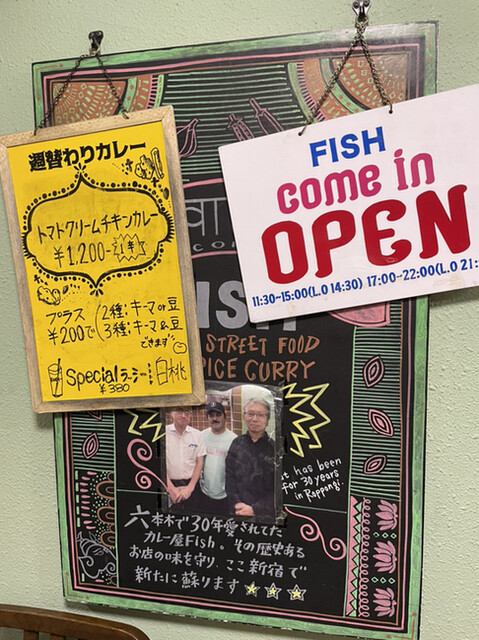 週替わりカレー
トマトクリームチキンカレー
¥1,200-
プラス
¥200で
2種:キーマor豆
3種:キーマ&豆
できます
Specialラッシー 白桃
¥380
FISH
come in
OPEN
11:30~15:00(L.O 14:30) 17:00~22:00(L.O 21:
STREET FOOD
CURRY
has been
for 30 years
in Roppongi.
六本木で30年愛されてた
カレー屋Fish。その歴史ある
お店の味を守り、ここ新宿で
新たに蘇ります